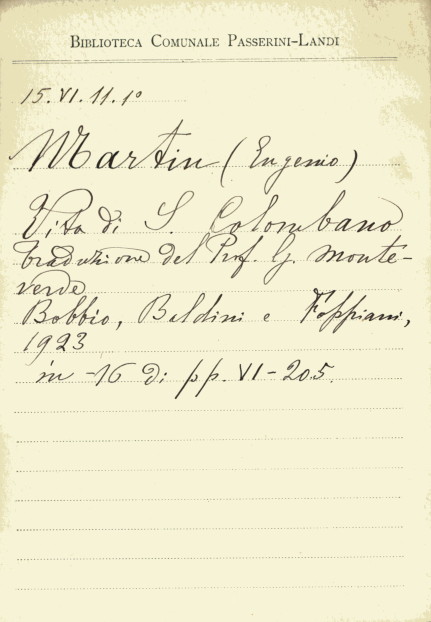 BIBLIOTECA COMUNALE PASSERINI-LANDI
15.VI.11.1º
Martin (Eugenio)
Vita di S. Colombano
traduzione del Prof. G. Monte-
verde
Bobbio, Baldini e Foppiani,
1923
in -16 di pp. VI-205.